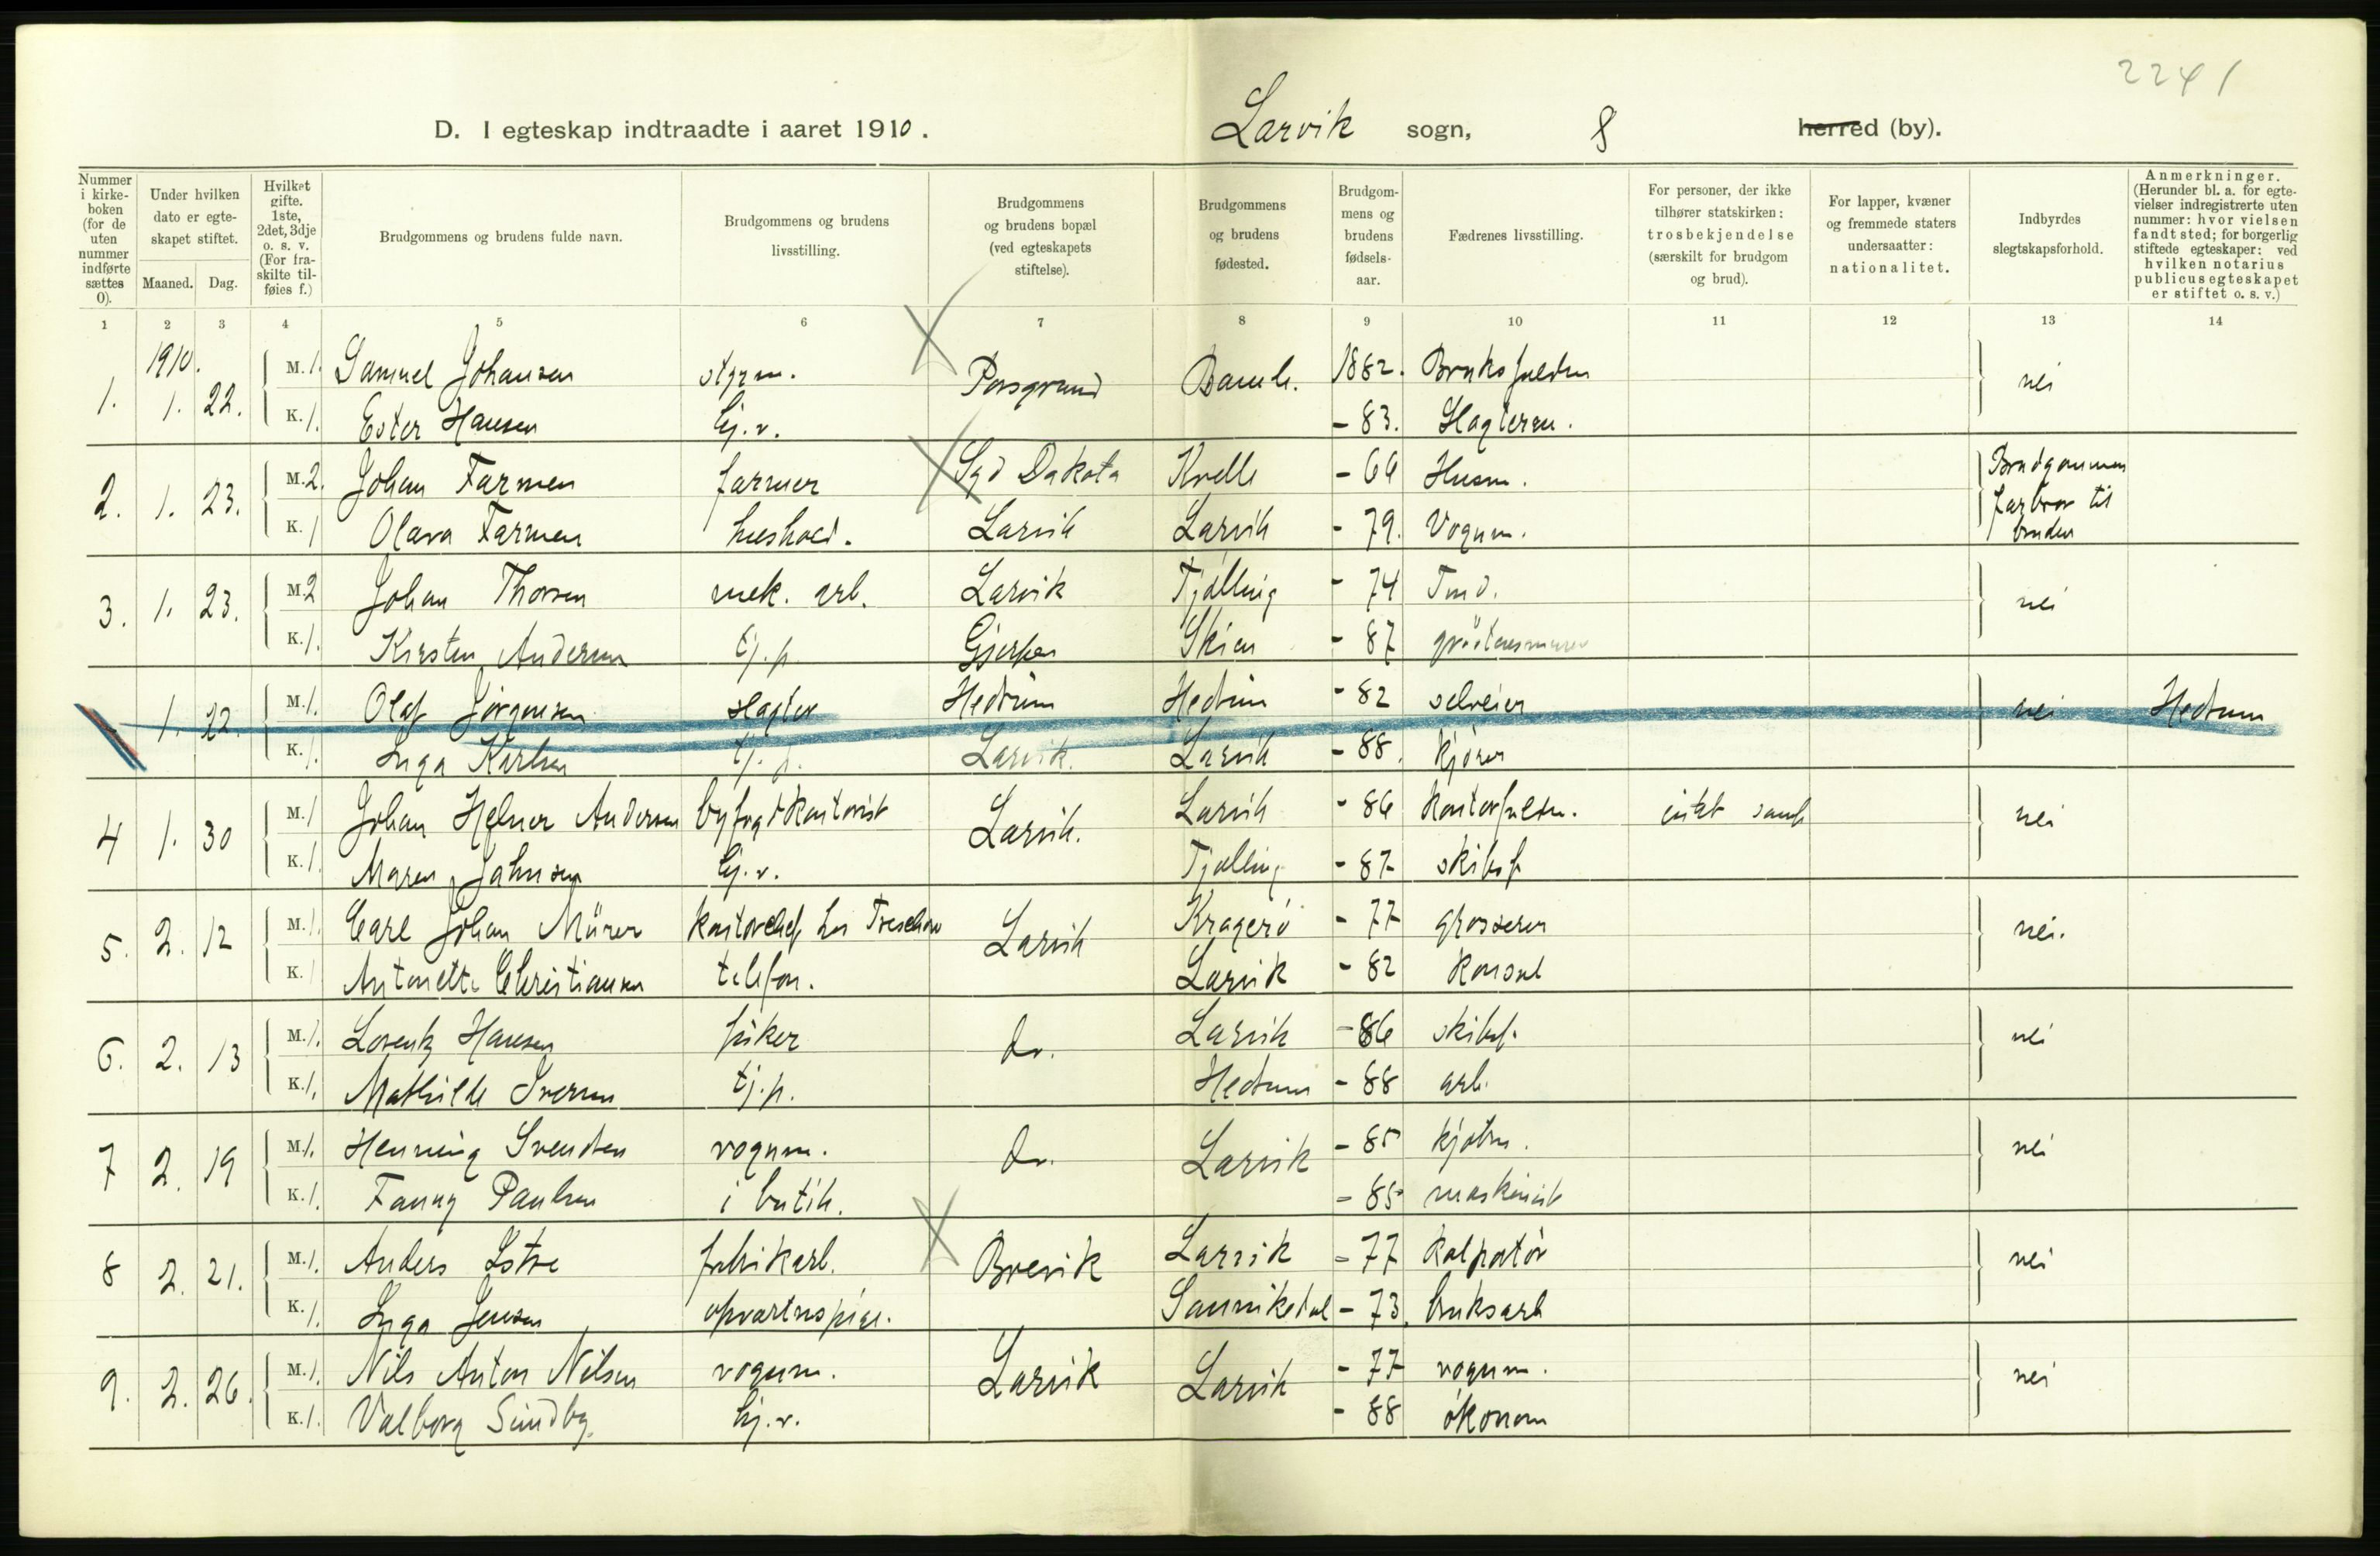 2241
D. I egteskap indtraadte i aaret 1910. Larvik sogn, 8 herred (by).
Nummer i kirke-boken (for de uten nummer indførte sættes 0).
Under hvilken dato er egte-skapet stiftet.
Maaned. Dag.
Hvilket gifte. 1ste, 2det, 3dje o. s. v. (For fra-skilte til-føies f.)
Brudgommens og brudens fulde navn.
Brudgommens og brudens livsstilling.
Brudgommens og brudens bopæl (ved egteskapets stiftelse).
Brudgommens og brudens fødested.
Brudgom-mens og brudens fødsels-aar.
Fædrenes livsstilling.
For personer, der ikke tilhører statskirken: trosbekjendelse (særskilt for brudgom og brud).
For lapper, kvæner og fremmede staters undersaatter: nationalitet.
Indbyrdes slegtskapsforhold.
Anmerkninger. (Herunder bl. a. for egte-vielser indregistrerte uten nummer: hvor vielsen fandt sted; for borgerlig stiftede egteskaper: ved hvilken notarius publicus egteskapet er stiftet o. s. v.)
1 2 3 4 5 6 7 8 9 10 11 12 13 14
1910.
1. 1. 22. M. 1. Samuel Johansen styrm. Porsgrund Bamle. 1882. nei
K. 1. Ester Hansen tj. v. - 83. Slagterm.
2. 1. 23. M. 2. Johan Farmen farmer Syd Dakota Kvelle - 66 Husm. Brudgommen farbror til bruden
K. 1 Olava Farmen hushold. Larvik Larvik - 79. Vognm.
3. 1. 23. M. 2 Johan Thorsen mek. arb. Larvik Tjølling - 74 Tmd. nei
K. 1. Kirsten Andersen tj. p. Gjerpen Skien - 87
1. 22. M. 1. Olaf Jörgensen slagter Hedrum Hedrum - 82 selveier nei Hedrum
K. 1. Inga Karlsen tj. p. Larvik. Larvik - 88. kjörer
4 1. 30 M. 1 Johan Helner Andersen byfogdkontorist Larvik. Larvik - 86 kontorfuldm. nei
K. 1. Maren Jahnsen tj. v. Tjølling - 87 skibsf
5. 2. 12 M. 1. Carl Johan Mürer kontorchef hos Treschow Larvik Kragerö - 77 grosserer nei.
K. 1 Antonette Christiansen telefon. Larvik - 82 konsul
6. 2. 13 M. 1. Lorentz Hansen fisker do. Larvik - 86 skibsf. nei
K. 1. Mathilde Iversen tj. p. Hedrum - 88 arb.
7 2. 19 M. 1. Henning Svendsen vognm. do. Larvik - 85 kjøbm. nei
K. 1. Fanny Paulsen i butik. - 85 maskinist
8 2. 21. M. 1. Anders Istre fabrikarb. Brevik Larvik - 77 kolportör nei
K. 1. Inga Jensen opvartnspige. Sannikedal - 73. bruksarb
9. 2. 26. M. 1. Nils Anton Nilsen vognm. Larvik Larvik - 77 vognm. nei
K. 1. Valborg Sundby. tj. v. - 88 økonom